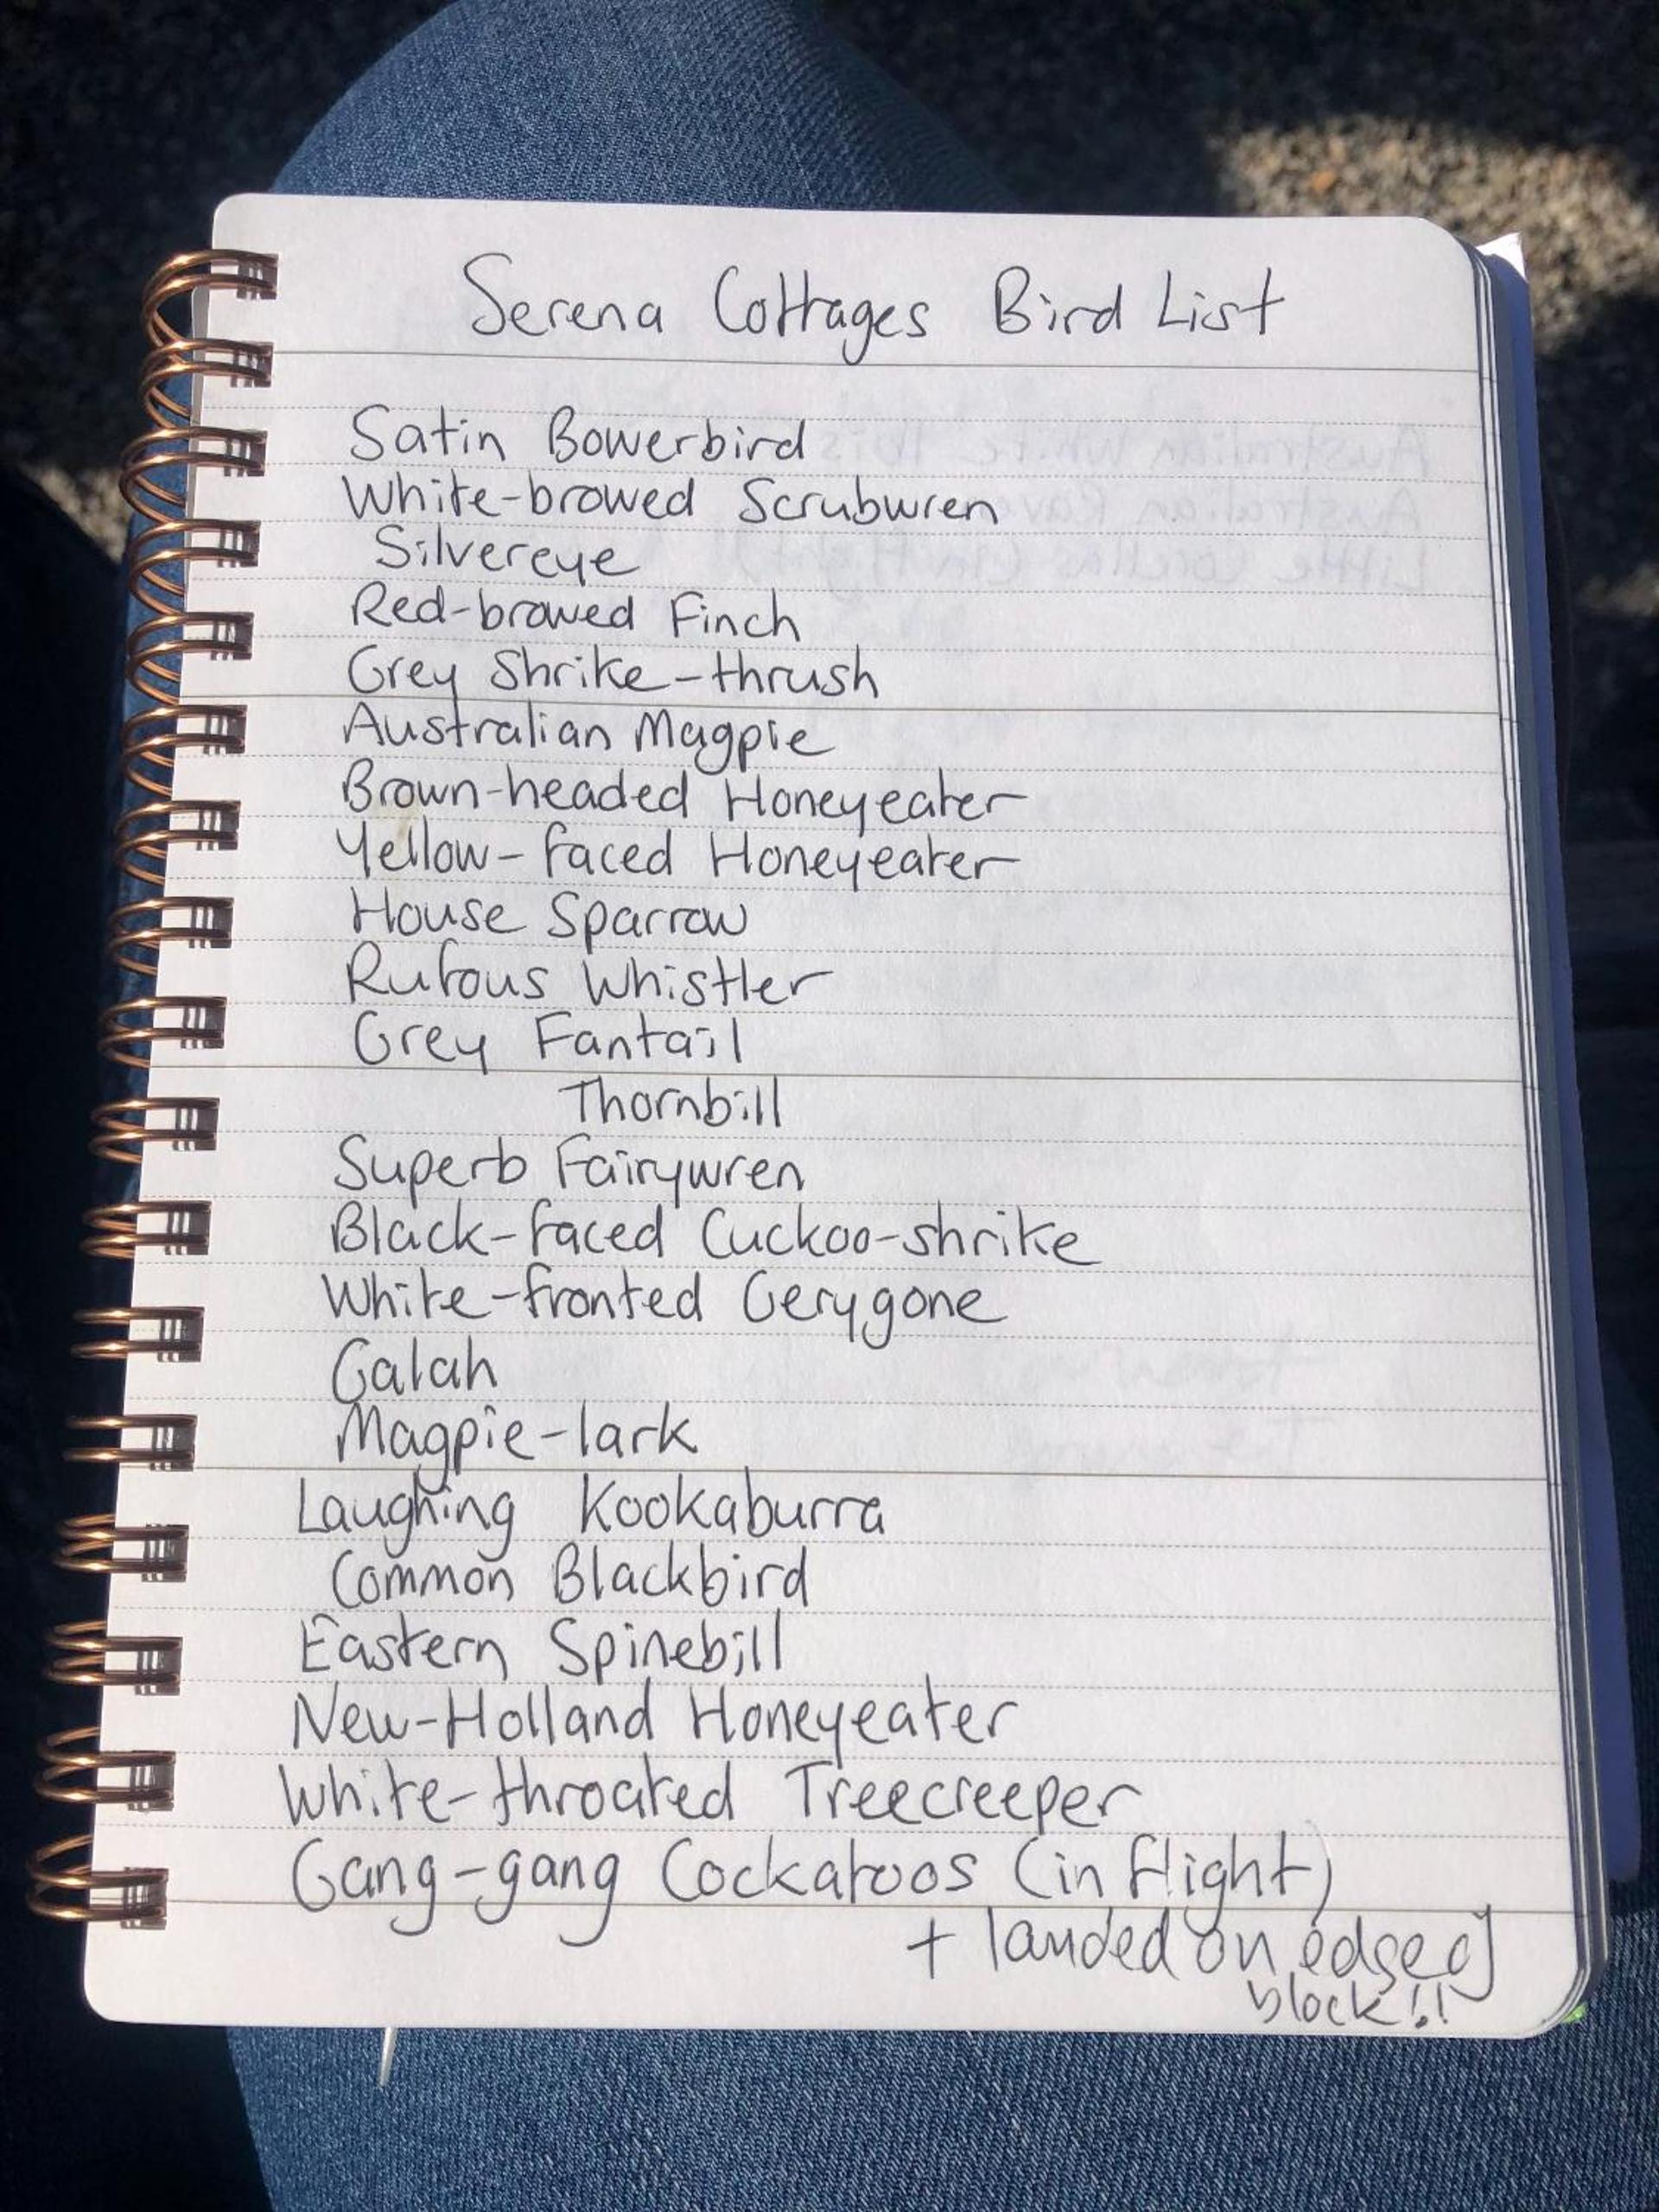 Serena Cottages Bird List
Satin Bowerbird
White-browed Scrubwren
Silvereye
Red-browed Finch
Grey Shrike-thrush
Australian Magpie
Brown-headed Honeyeater
Yellow-faced Honeyeater
House Sparrow
Rufous Whistler
Grey Fantail
Thornbill
Superb Fairywren
Black-faced Cuckoo-shrike
White-fronted Gerygone
Galah
Magpie-lark
Laughing Kookaburra
Common Blackbird
Eastern Spinebill
New-Holland Honeyeater
White-throated Treecreeper
Gang-gang Cockatoos (in flight)
+ landed on edge of
block!!